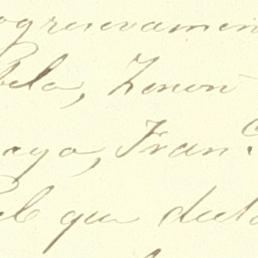 ogresivamen
bela, Zenon
raya, Fran.co
el que dicta